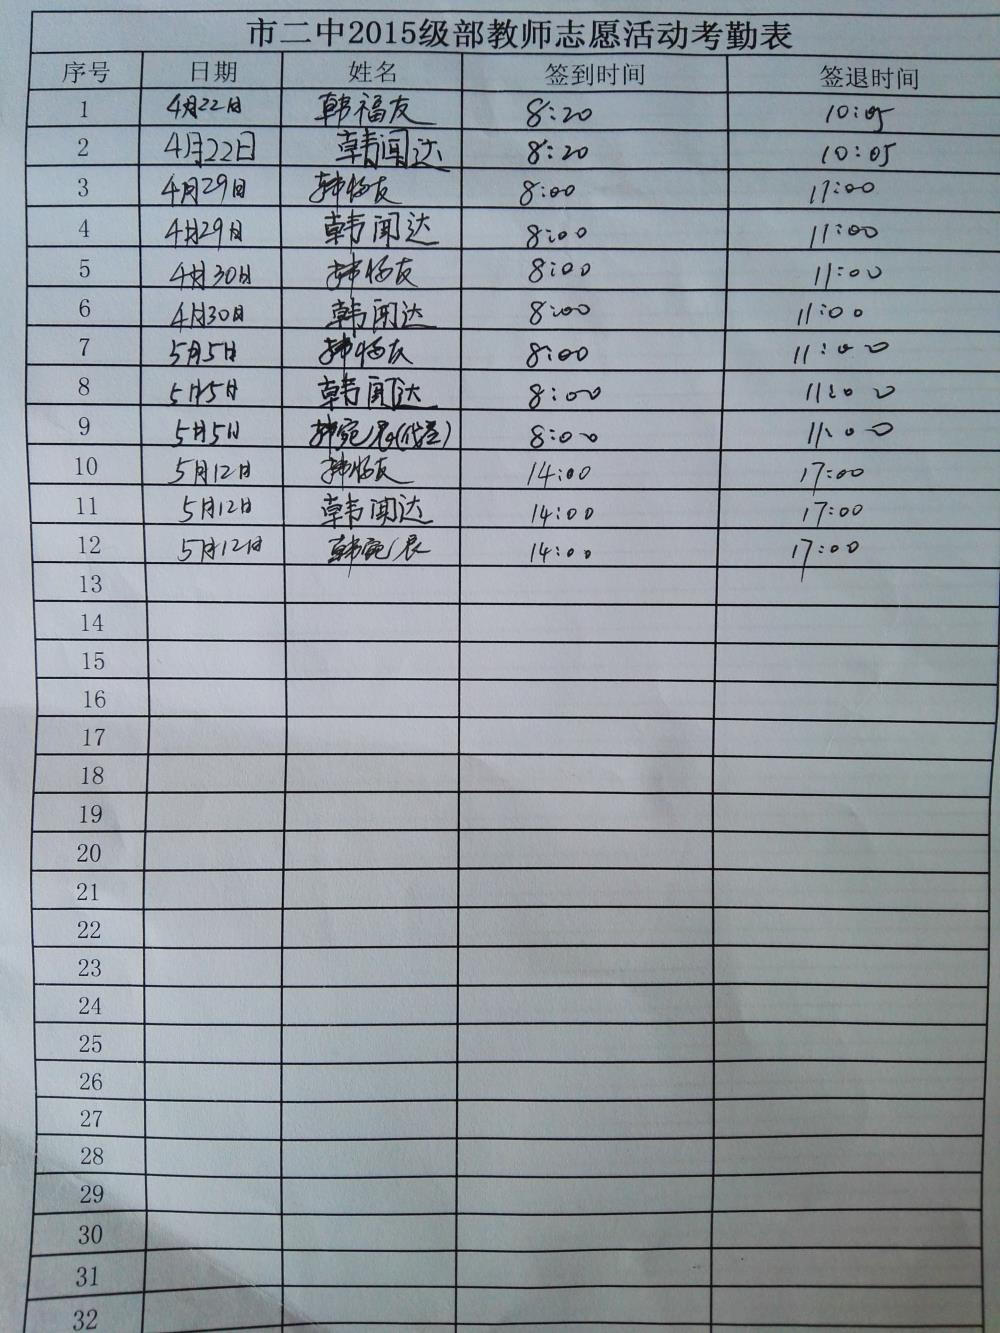 市二中2015级部教师志愿活动考勤表
序号 日期 姓名 签到时间 签退时间
1 4月22日 韩福友 8:20 10:05
2 4月22日 韩闻达 8:20 10:05
3 4月29日 韩福友 8:00 11:00
4 4月29日 韩闻达 8:00 11:00
5 4月30日 韩福友 8:00 11:00
6 4月30日 韩闻达 8:00 11:00
7 5月5日 韩福友 8:00 11:00
8 5月5日 韩闻达 8:00 11:00
9 5月5日 韩宛辰(代签) 8:00 11:00
10 5月12日 韩福友 14:00 17:00
11 5月12日 韩闻达 14:00 17:00
12 5月12日 韩宛辰 14:00 17:00
13
14
15
16
17
18
19
20
21
22
23
24
25
26
27
28
29
30
31
32